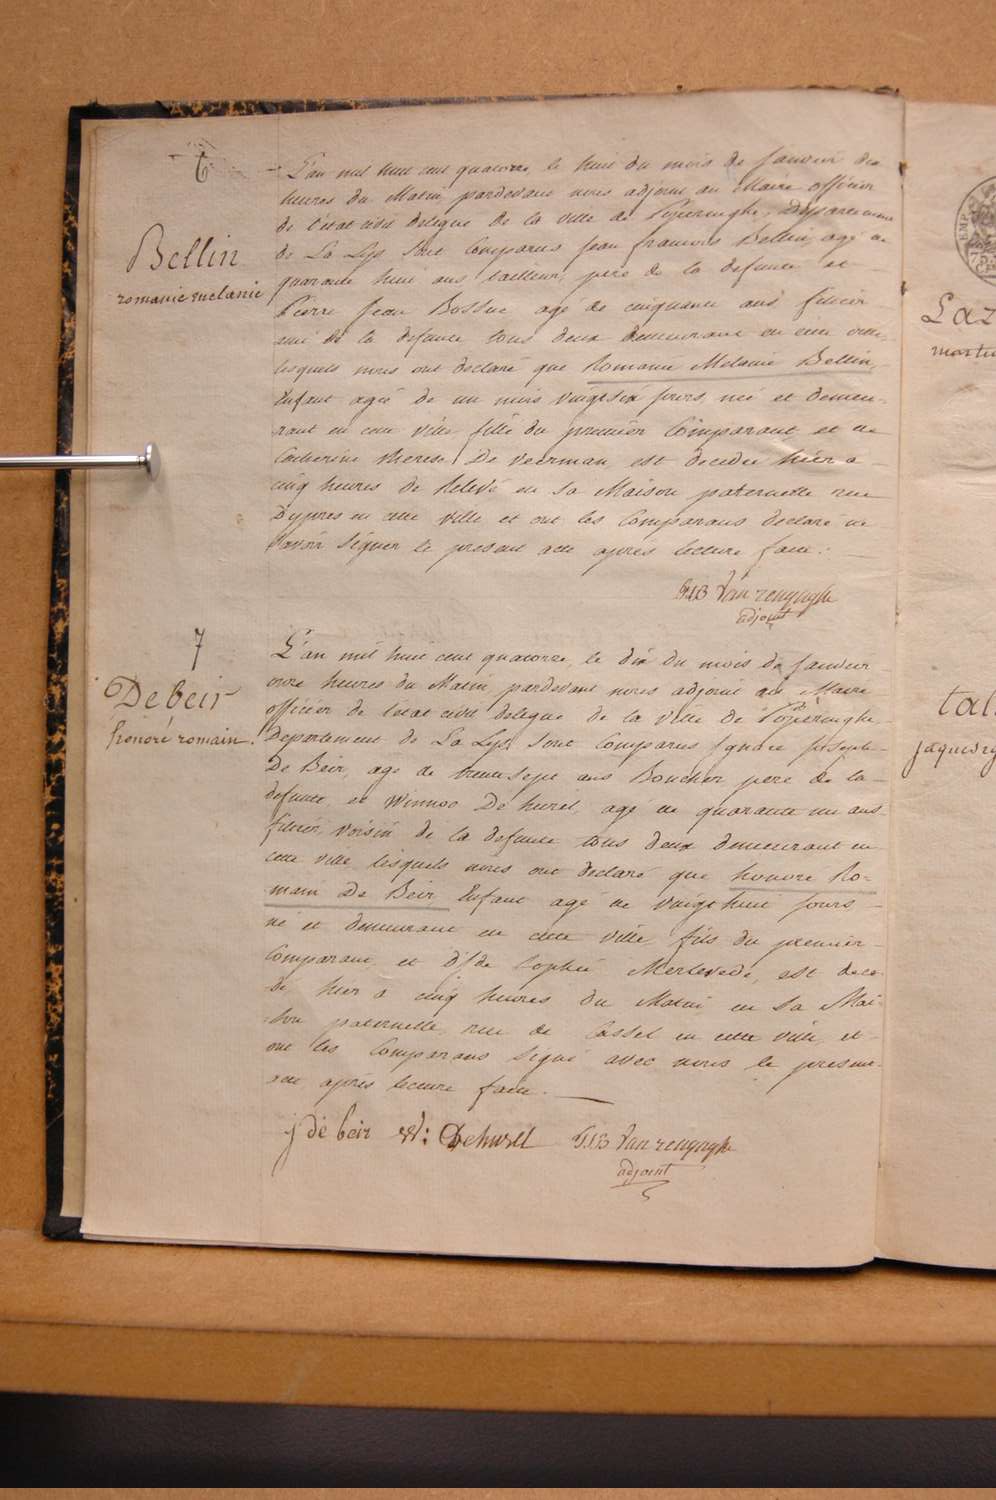 6
Bellin
romanie melanie
L'an mil huit cent quatorze, le huit du mois de Janvier dix
heures du Matin, pardevant nous adjoint au Maire officier
de l'état civil délégué de la ville de Poperinghe, Département
de La Lys sont Comparus Jean francois Bellin, agé de
quarante huit ans tailleur, père de la defunte et
Pierre Jean Bossue agé de cinquante ans filtier
ami de la défunte tous deux demeurant en cette ville,
lesquels nous ont declaré que Romanie Melanie Bellin,
Enfant agée de un mois vingt six jours, née et demeu-
rant en cette ville, fille du premier Comparant et de
Catherine therese De Veerman, est decedée hier a
cinq heures de Relevé en Sa Maison paternelle rue
D'ypres en cette ville et ont les Comparans declaré ne
Savoir Signer le present acte après lecture faite.
F.J.B Van renynghe
adjoint
7
De beir
honoré romain.
L'an mil huit cent quatorze, le dix du mois de Janvier
onze heures du Matin, pardevant nous adjoint au Maire
officier de l'etat civil délégué de la Ville de Poperinghe,
Departement de La Lys, sont Comparus Ignace Joseph
De Beir, agé de trente sept ans Boucher père de la
defunte, et Winnoc De hurel, agé de quarante un ans
filtier, voisin de la defunte tous deux demeurant en
cette ville lesquels nous ont declaré que honoré Ro=
main De Beir Enfant agé de vingt huit jours
né et demeurant en cette ville, fils du premier
Comparant, et de Sophie Merlevede, est dece-
dé hier a cinq heures du Matin en Sa Mai-
son paternelle, rue de Cassel en cette ville, et
ont les Comparans Signé avec nous le present
acte après lecture faite.
j de beir W: Dehurel F.J.B Van renynghe
adjoint
EMP
75
Laz
martin
tal
jaques